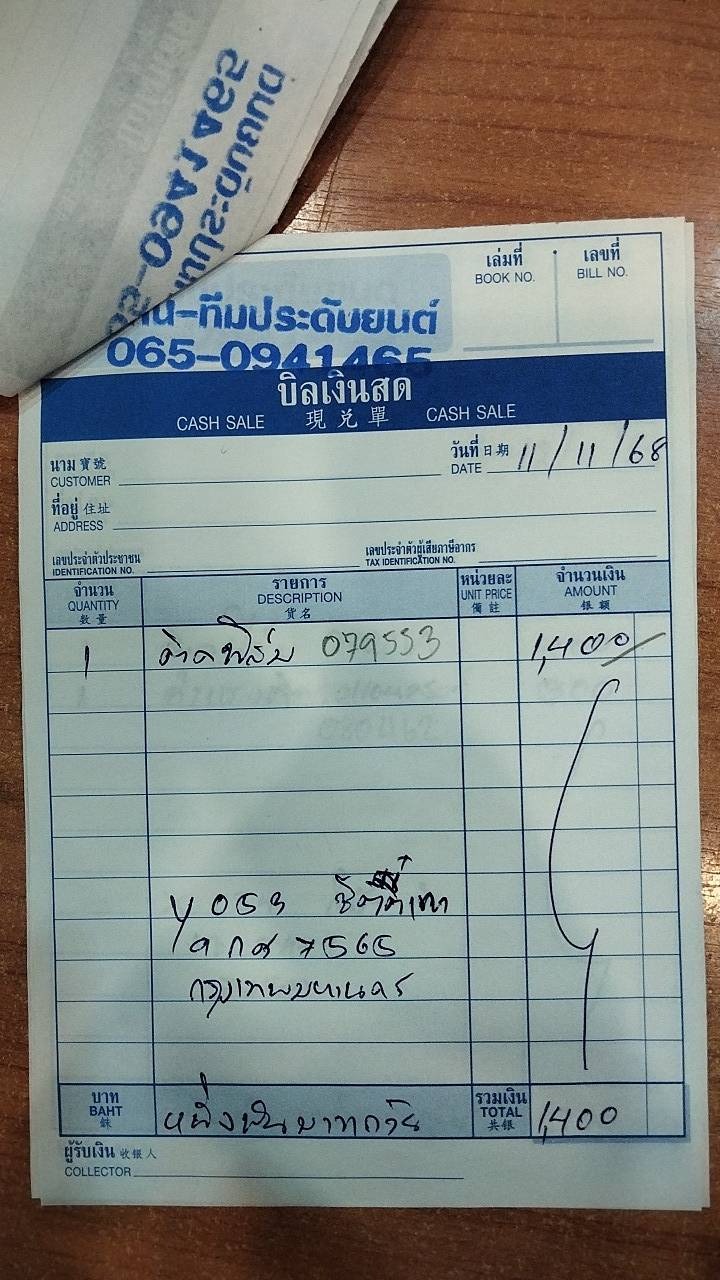 065-0941465
ทีมประดับยนต์
น์-ทีมประดับยนต์
065-0941465
เล่มที่
BOOK NO.
เลขที่
BILL NO.
บิลเงินสด
CASH SALE 現兌單 CASH SALE
นาม 寶號
CUSTOMER
วันที่ 日期
DATE 11/11/68
ที่อยู่ 住址
ADDRESS
เลขประจำตัวประชาชน
IDENTIFICATION NO.
เลขประจำตัวผู้เสียภาษีอากร
TAX IDENTIFICATION NO.
จำนวน
QUANTITY
數量
รายการ
DESCRIPTION
貨名
หน่วยละ
UNIT PRICE
備註
จำนวนเงิน
AMOUNT
銀額
1 ค่าฟิล์ม 079553 1,400
7565
กรุงเทพมหานคร
บาท
BAHT
銖
รวมเงิน
TOTAL
共銀
1,400
ผู้รับเงิน 收銀人
COLLECTOR